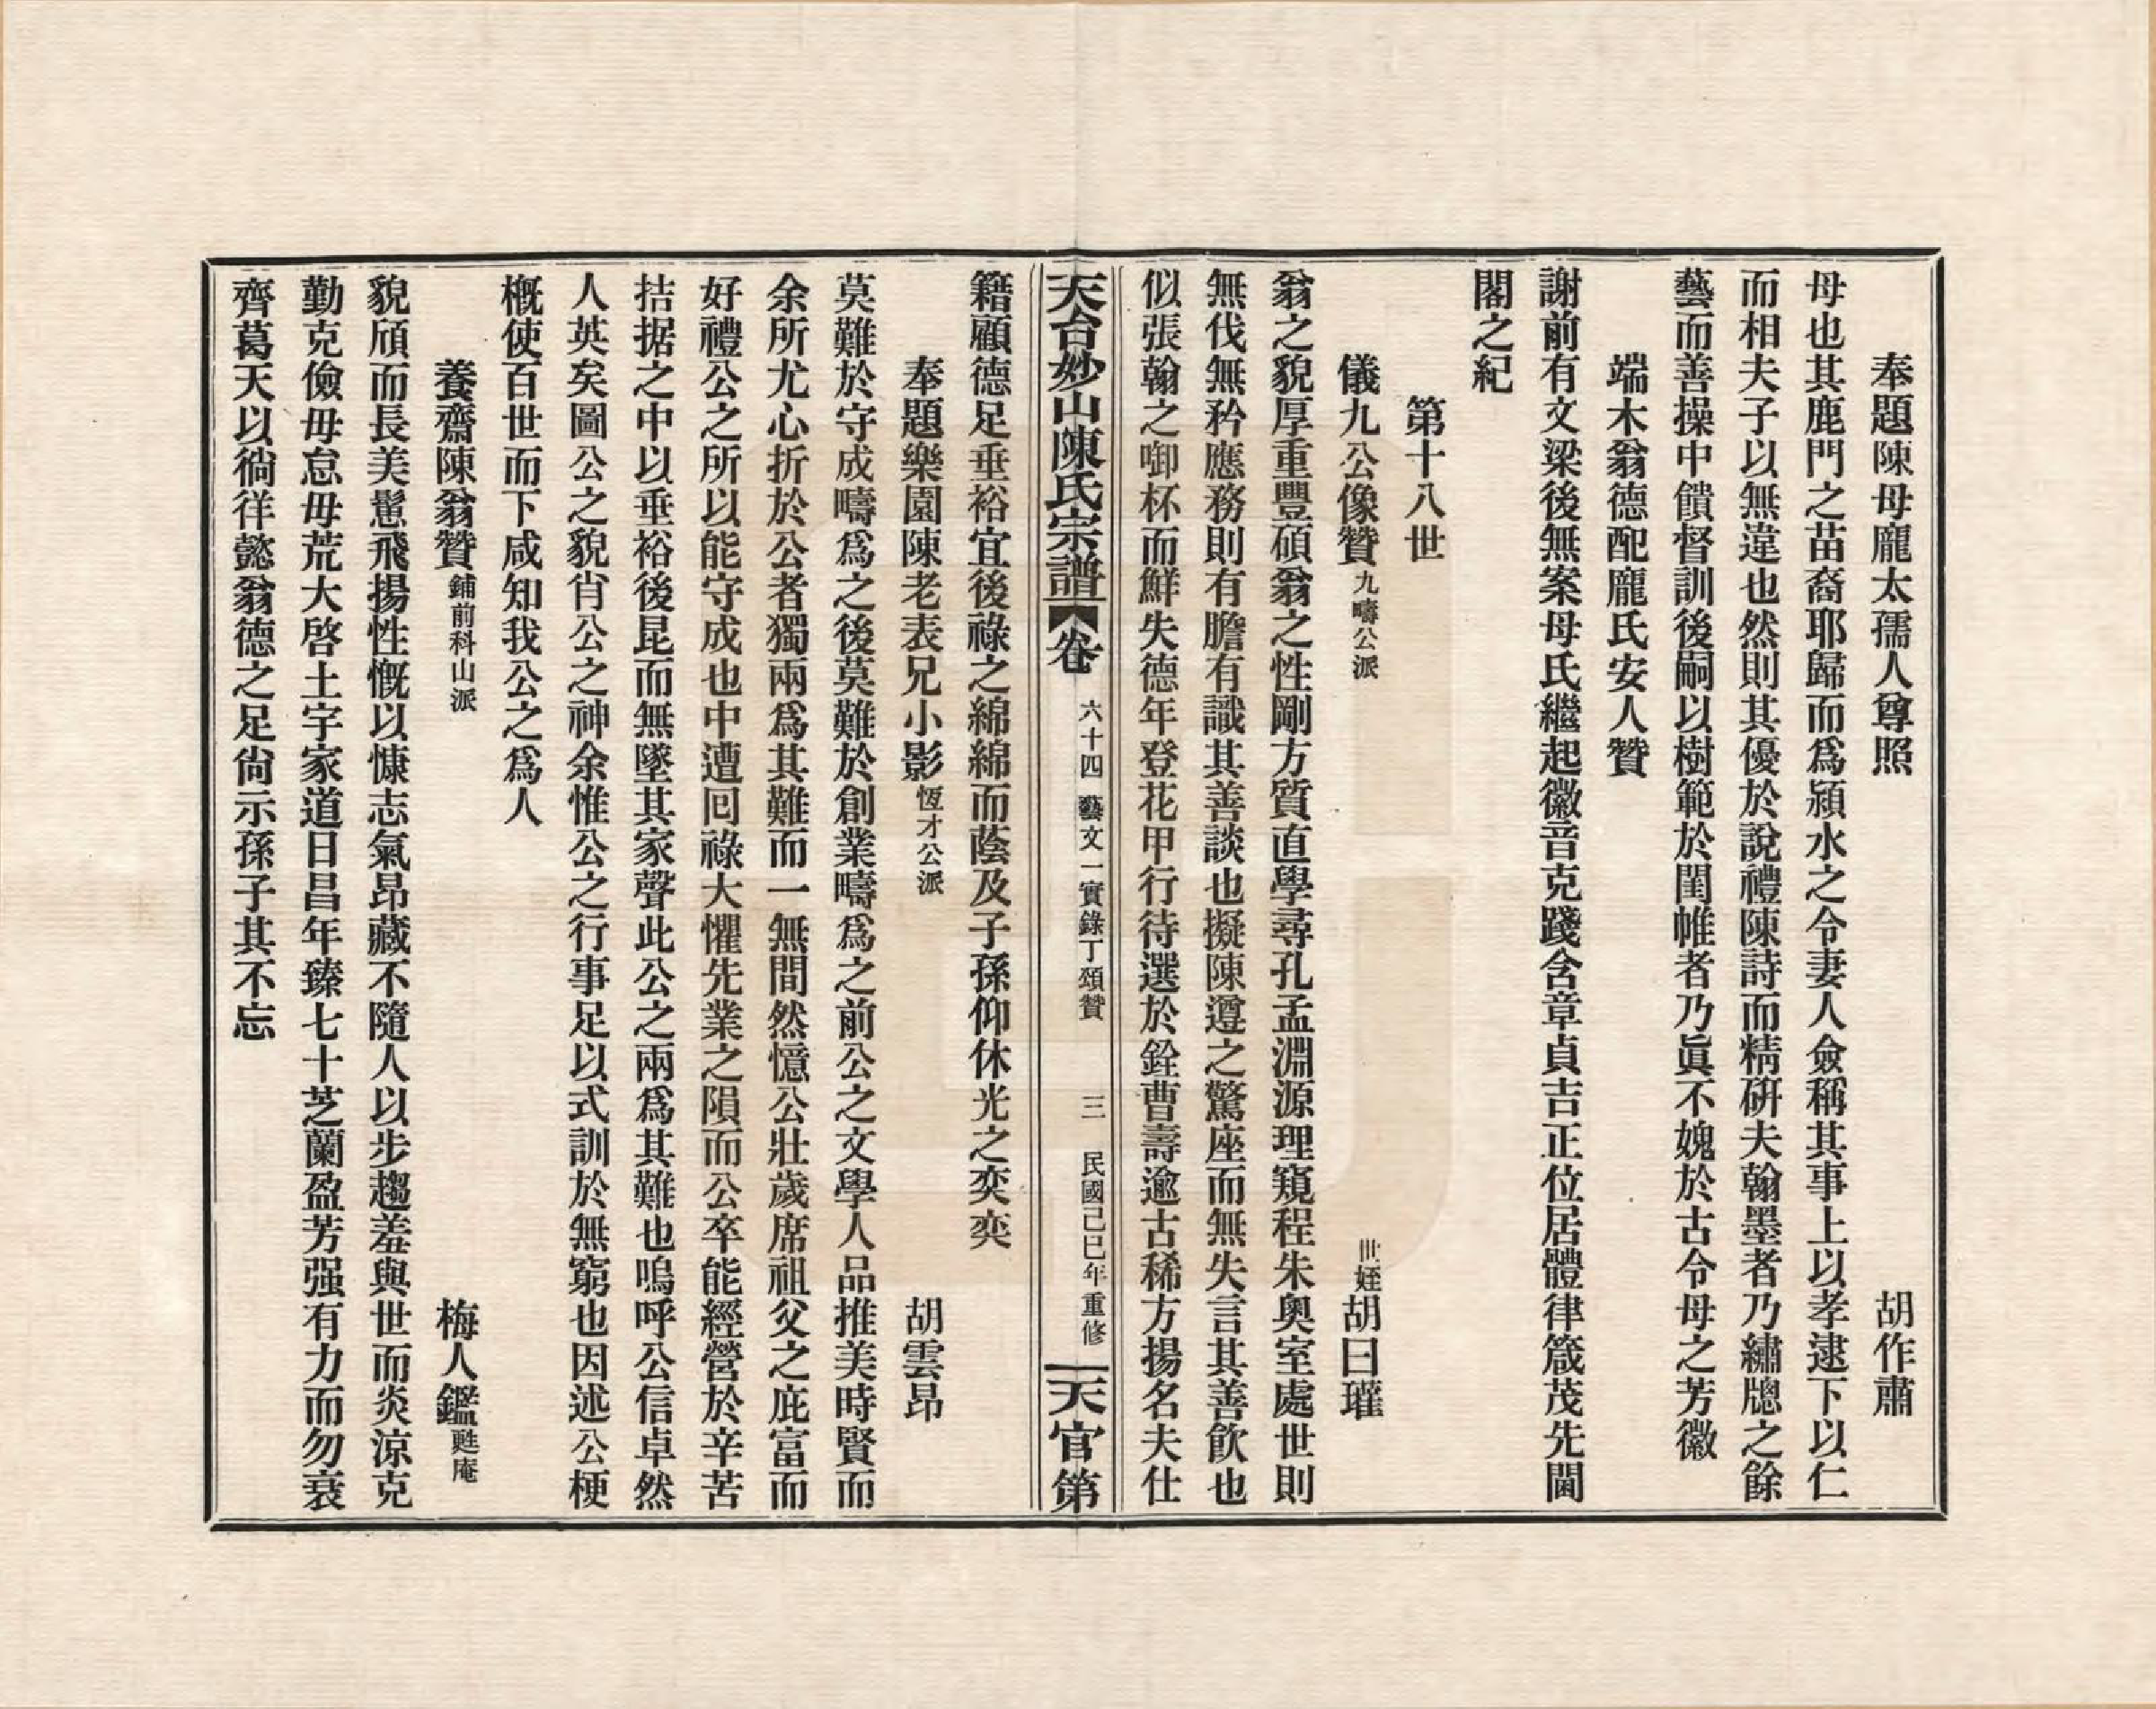 奉題陳母龐太孺人尊照　胡作肅
母也其鹿門之苗裔耶歸而爲潁水之令妻人僉稱其事上以孝逮下以仁
而相夫子以無違也然則其優於說禮陳詩而精硏夫翰墨者乃繡牕之餘
藝而善操中饋督訓後嗣以樹範於閨帷者乃眞不媿於古令母之芳徽
端木翁德配龐氏安人贊
謝前有文梁後無案母氏繼起徽音克踐含章貞吉正位居體律箴茂先閫
閣之紀
第十八世
儀九公像贊九疇公派　世姪胡曰瓘
翁之貌厚重豐碩翁之性剛方質直學尋孔孟淵源理窺程朱奧室處世則
無伐無矜應務則有膽有識其善談也擬陳遵之驚座而無失言其善飮也
似張翰之啣杯而鮮失德年登花甲行待選於銓曹壽逾古稀方揚名夫仕
天台妙山陳氏宗譜　卷六十四　藝文一實錄丁頌贊　三　民國己巳年重修　天官第
籍顧德足垂裕宜後祿之綿綿而蔭及子孫仰休光之奕奕
奉題樂園陳老表兄小影恆才公派　胡雲昂
莫難於守成疇爲之後莫難於創業疇爲之前公之文學人品推美時賢而
余所尤心折於公者獨兩爲其難而一無間然憶公壯歲席祖父之庇富而
好禮公之所以能守成也中遭囘祿大懼先業之隕而公卒能經營於辛苦
拮据之中以垂裕後昆而無墜其家聲此公之兩爲其難也嗚呼公信卓然
人英矣圖公之貌肖公之神余惟公之行事足以式訓於無窮也因述公梗
槪使百世而下咸知我公之爲人
養齋陳翁贊鋪前科山派　梅人鑑甦庵
貌頎而長美髯飛揚性慨以慷志氣昂藏不隨人以步趨羞與世而炎涼克
勤克儉毋怠毋荒大啓土宇家道日昌年臻七十芝蘭盈芳强有力而勿衰
齊葛天以徜徉懿翁德之足尙示孫子其不忘